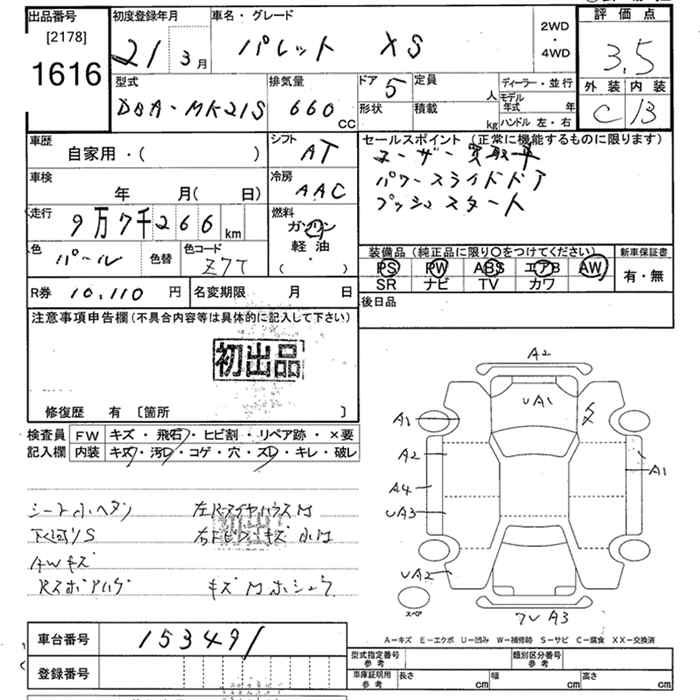 出品番号
[2178]
1616
初度登録年月
21 3月
車名・グレード
パレット XS
2WD
・
4WD
評価点
3.5
外装 内装
C B
型式
DBA-MK21S
排気量
660 cc
ドア 5
形状
定員
人
積載
kg
ディーラー・並行
モデル年式 年
ハンドル 左・右
車歴
自家用・( )
シフト
AT
セールスポイント (正常に機能するものに限ります)
ユーザー買取車
パワースライドドア
プッシュスタート
車検
年 月( 日)
冷房
AAC
走行
9万7千266 km
燃料
ガソリン
軽油
( ・ )
色
パール
色替
色コード
Z7T
装備品 (純正品に限り○をつけてください)
PS PW ABS エアB AW
SR ナビ TV カワ
新車保証書
有・無
R券 10,110 円
名変期限 月 日
後日品
注意事項申告欄(不具合内容等は具体的に記入して下さい)
初出品
修復歴 有 〔箇所 〕
検査員
記入欄
FW キズ・飛石・ヒビ割・リペア跡・×要
内装 キズ・汚レ・コゲ・穴・スレ・キレ・破レ
シート小ヘタリ
下廻りS
AWキズ
キズMホシュウ
初出品
A2
UA1
A1
A2
A4
UA3
UA2
A1
A3
スペア
A－キズ E－エクボ U－凹み W－補修跡 S－サビ C－腐食 XX－交換済
車台番号
153491
登録番号
型式指定番号
参考
類別区分番号
参考
車庫証明用
参考
長さ cm
幅 cm
高さ cm